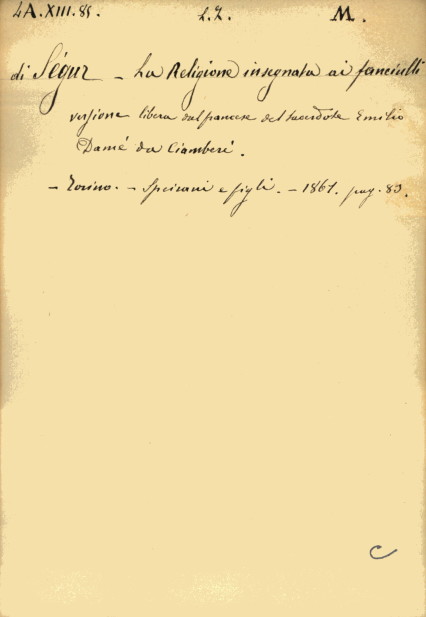 4A.XIII.85. L.Z. M.
di Ségur – La Religione insegnata ai fanciulli
versione libera dal francese del sacerdote Emilio
Damé da Ciamberì.
– Torino. – Speirani e figli. – 1867. pag. 83.
C